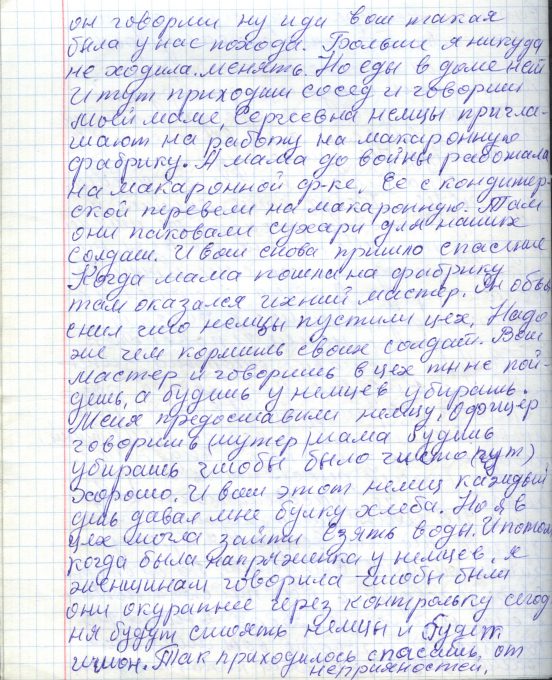 он говорил ну иди вот такая
была у нас погода. Больши я никуда
не ходила. менять. Но еды в доме ней
И тут приходит сосед и говорит
моей маме, Сергеевна немцы пригла-
шают на работу на макаронную
фабрику. А мама до войны работала
на макаронной ф-ке, Её с кондитер-
ской перевели на макаронную. Там
они паковали сухари для наших
солдат. И вот снова пришло спасение
Когда мама пошла на фабрику
там оказался ихний мастер. Он объя
снил что немцы пустили цех, Надо
же чем кормить своих солдат. Вот
мастер и говорить в цех ты не пой-
дешь, а будишь у немцев убирать.
Меня предоставили немцу, Офицер
говорить (мутер) мама будишь
убирать чтобы было чисто (гут)
хорошо. И вот этот немец каждый
день давал мне булку хлеба. Но я в
цех могла зайти взять воды. И потом
когда была напряженка у немцев, я
женщинам говорила чтобы были
они окуратнее через контрольку сегод-
ня будут стоять немцы и будет
шмон. Так приходилось спасать от
неприяжностей.